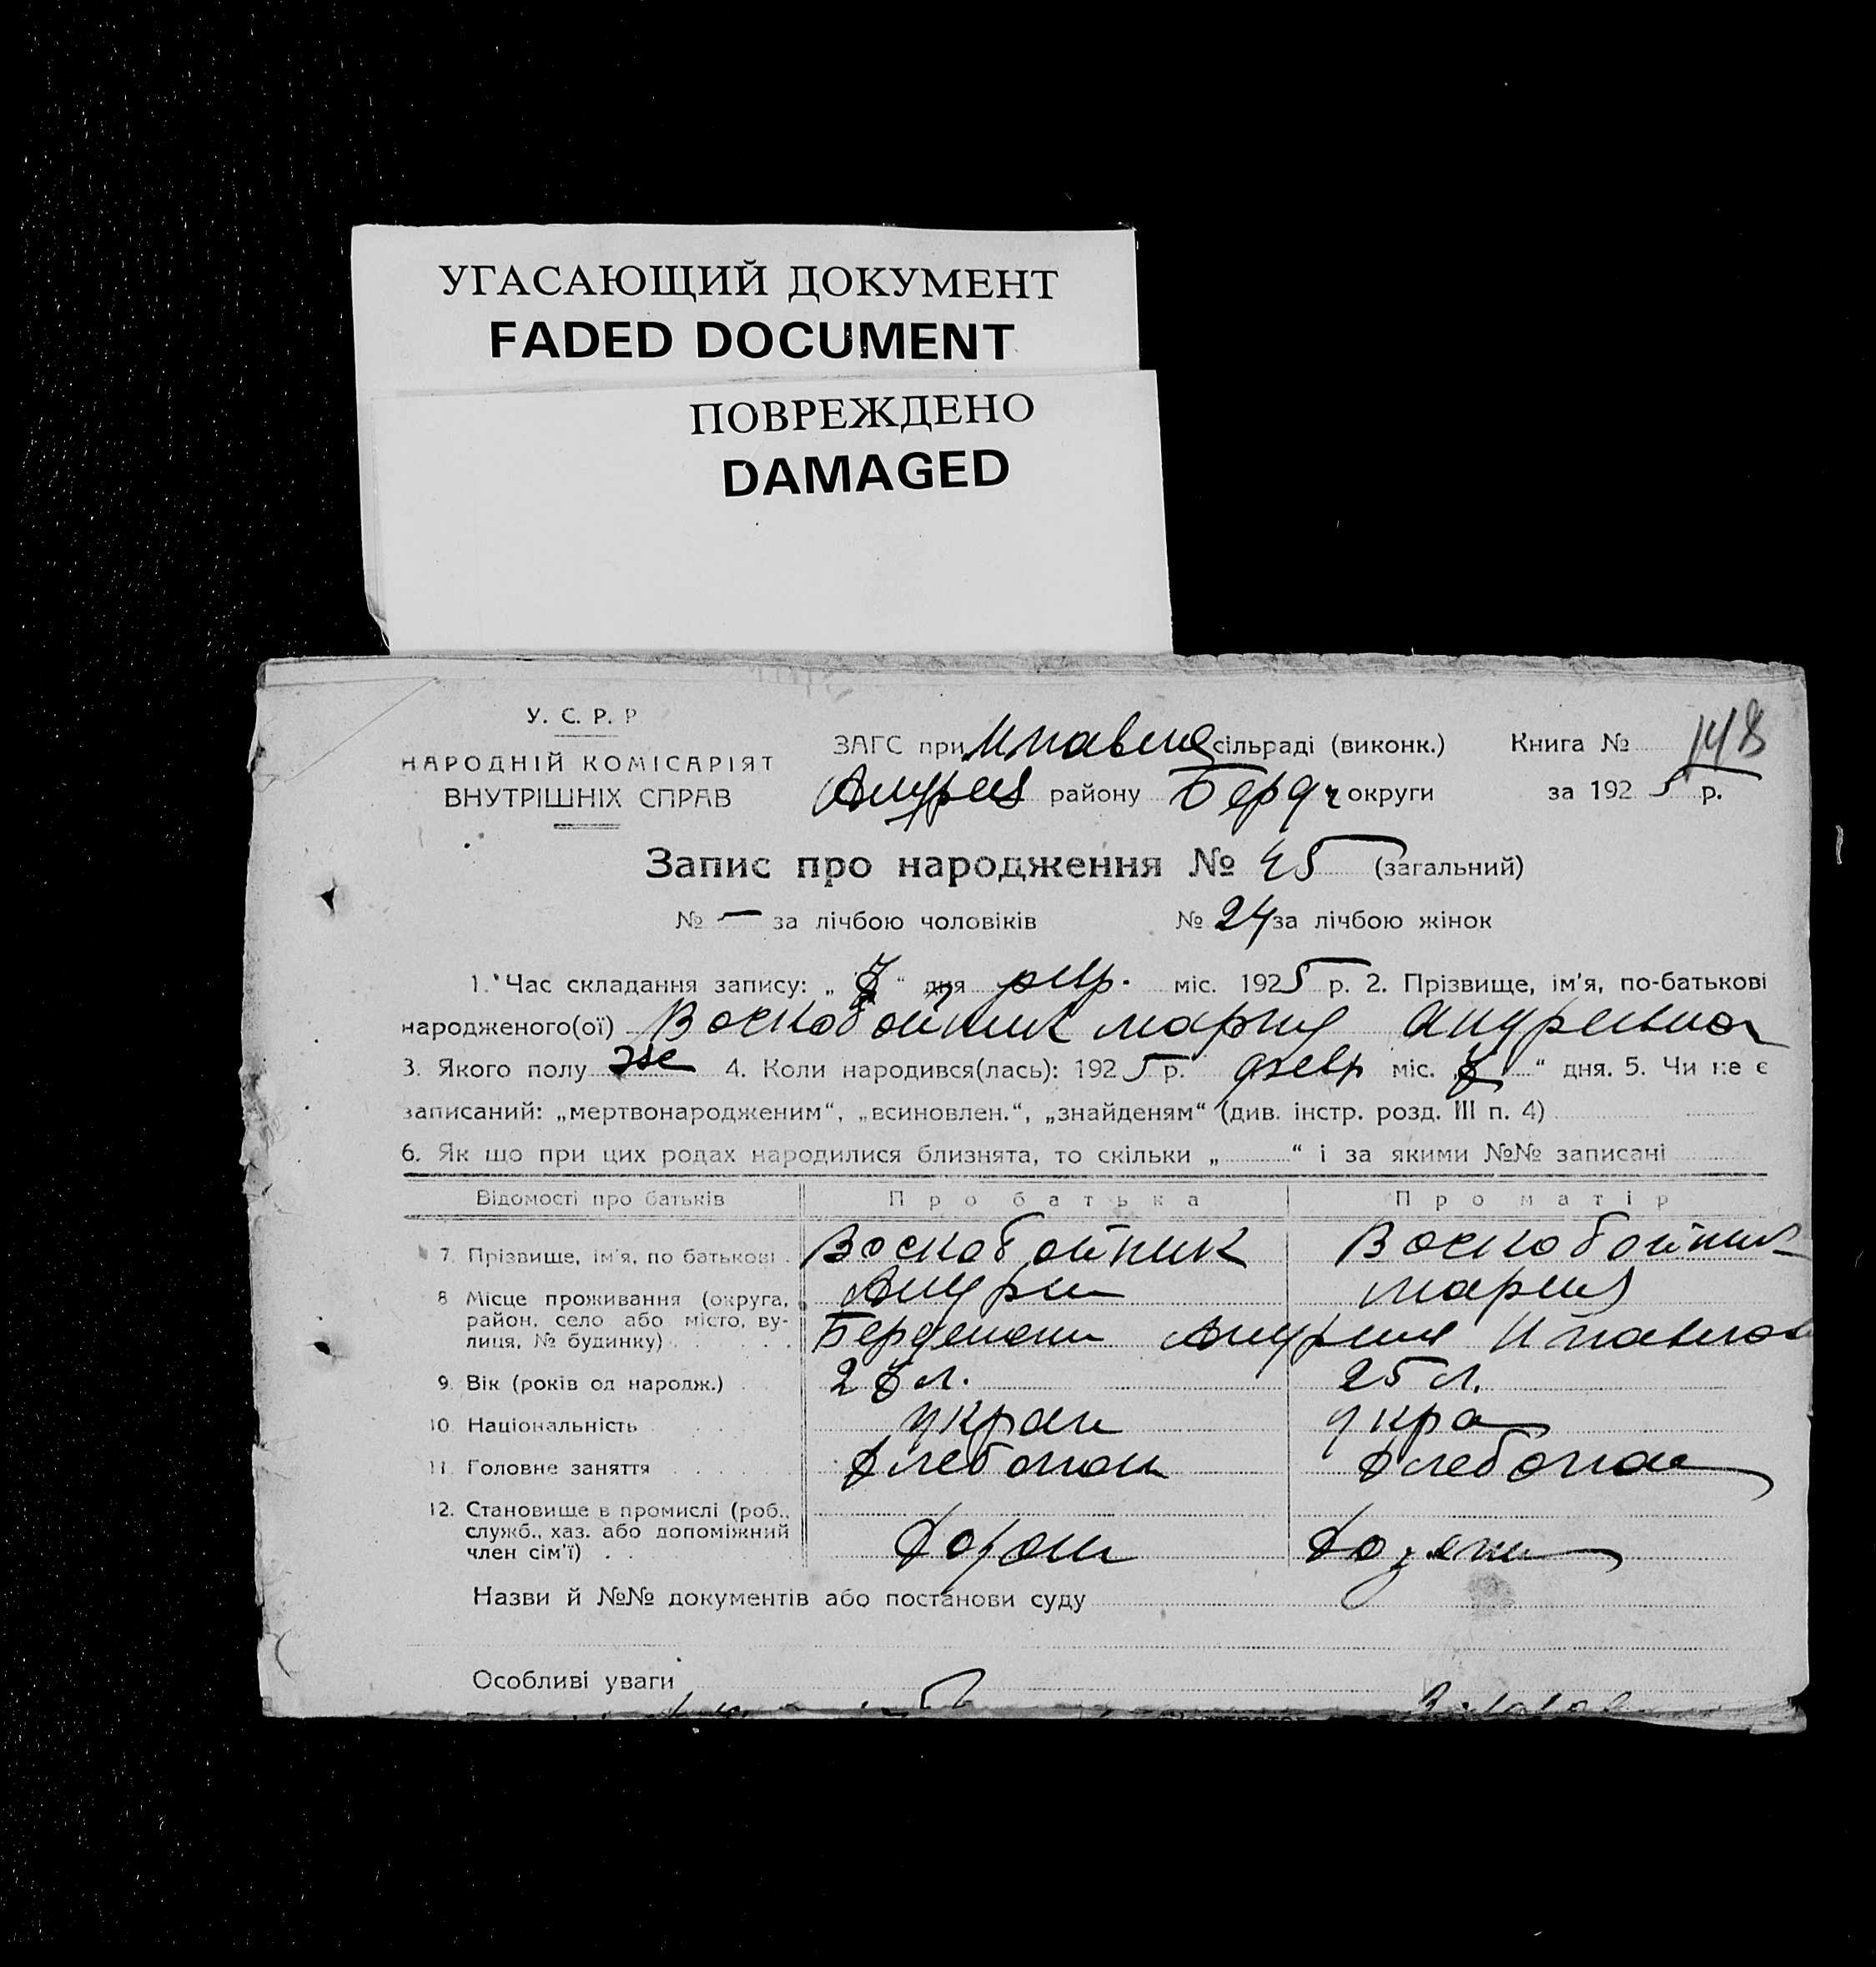 УГАСАЮЩИЙ ДОКУМЕНТ
FADED DOCUMENT
ПОВРЕЖДЕНО
DAMAGED
У. С. Р. Р
НАРОДНІЙ КОМІСАРІЯТ
ВНУТРІШНІХ СПРАВ
ЗАГС при сільраді (виконк.) Книга № 148
району Бердч округи за 1925 р.
Запис про народження № 45 (загальний)
№ — за лічбою чоловіків № 24 за лічбою жінок
1. Час складання запису: „ “ дня февр. міс. 1925 р. 2. Прізвище, ім'я, по-батькові
народженого(ої) Воскобойник Мария Андреевна
3. Якого полу же 4. Коли народився(лась): 1925 р. февр міс. „ “ дня. 5. Чи не є
записаний: „мертвонародженим“, „всиновлен.“, „знайденям“ (див. інстр. розд. III п. 4)
6. Як що при цих родах народилися близнята, то скільки „ “ і за якими №№ записані
Відомості про батьків Про батька Про матір
7. Прізвище, ім'я, по батькові Воскобойник Воскобойник
Андрей Мария
8 Місце проживання (округа,
район, село або місто, ву-
лиця, № будинку)
9. Вік (років од народж.) л. 25 л.
10. Національність украи укра
11. Головне заняття Хлебопаш Хлебопаш
12. Становище в промислі (роб.,
служб., хаз. або допоміжний
член сім'ї)
Назви й №№ документів або постанови суду
Особливі уваги